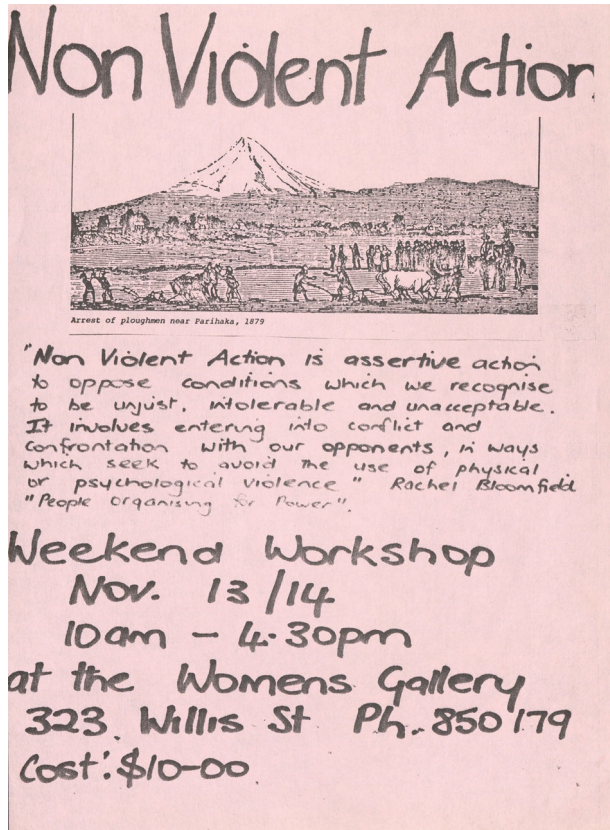 Non Violent Action
Arrest of ploughmen near Parihaka, 1879
"Non Violent Action is assertive action
to oppose conditions which we recognise
to be unjust, intolerable and unacceptable.
It involves entering into conflict and
confrontation with our opponents, in ways
which seek to avoid the use of physical
or psychological violence" Rachel Bloomfield
"People organising for Power".
Weekend Workshop
Nov. 13/14
10am - 4.30pm
at the Womens Gallery
323 Willis St Ph. 850179
Cost: $10-00